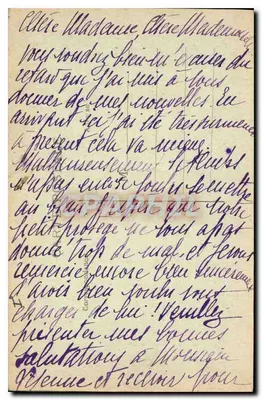 Chère Madame, Chère Mademoiselle
vous voudrez bien m'excuser du
retard que j'ai mis à vous
donner de mes nouvelles. En
arrivant ici j'ai été très
à présent cela va mieux.
Malheureusement le temps
n'a pas encore voulu se mettre
au
petit protégé ne vous a pas
donné trop de mal et je vous
remercie encore bien sincèrement
d'avoir bien voulu vous
charger de lui. Veuillez
présenter mes bonnes
salutations à Monsieur
Etienne et recevoir pour